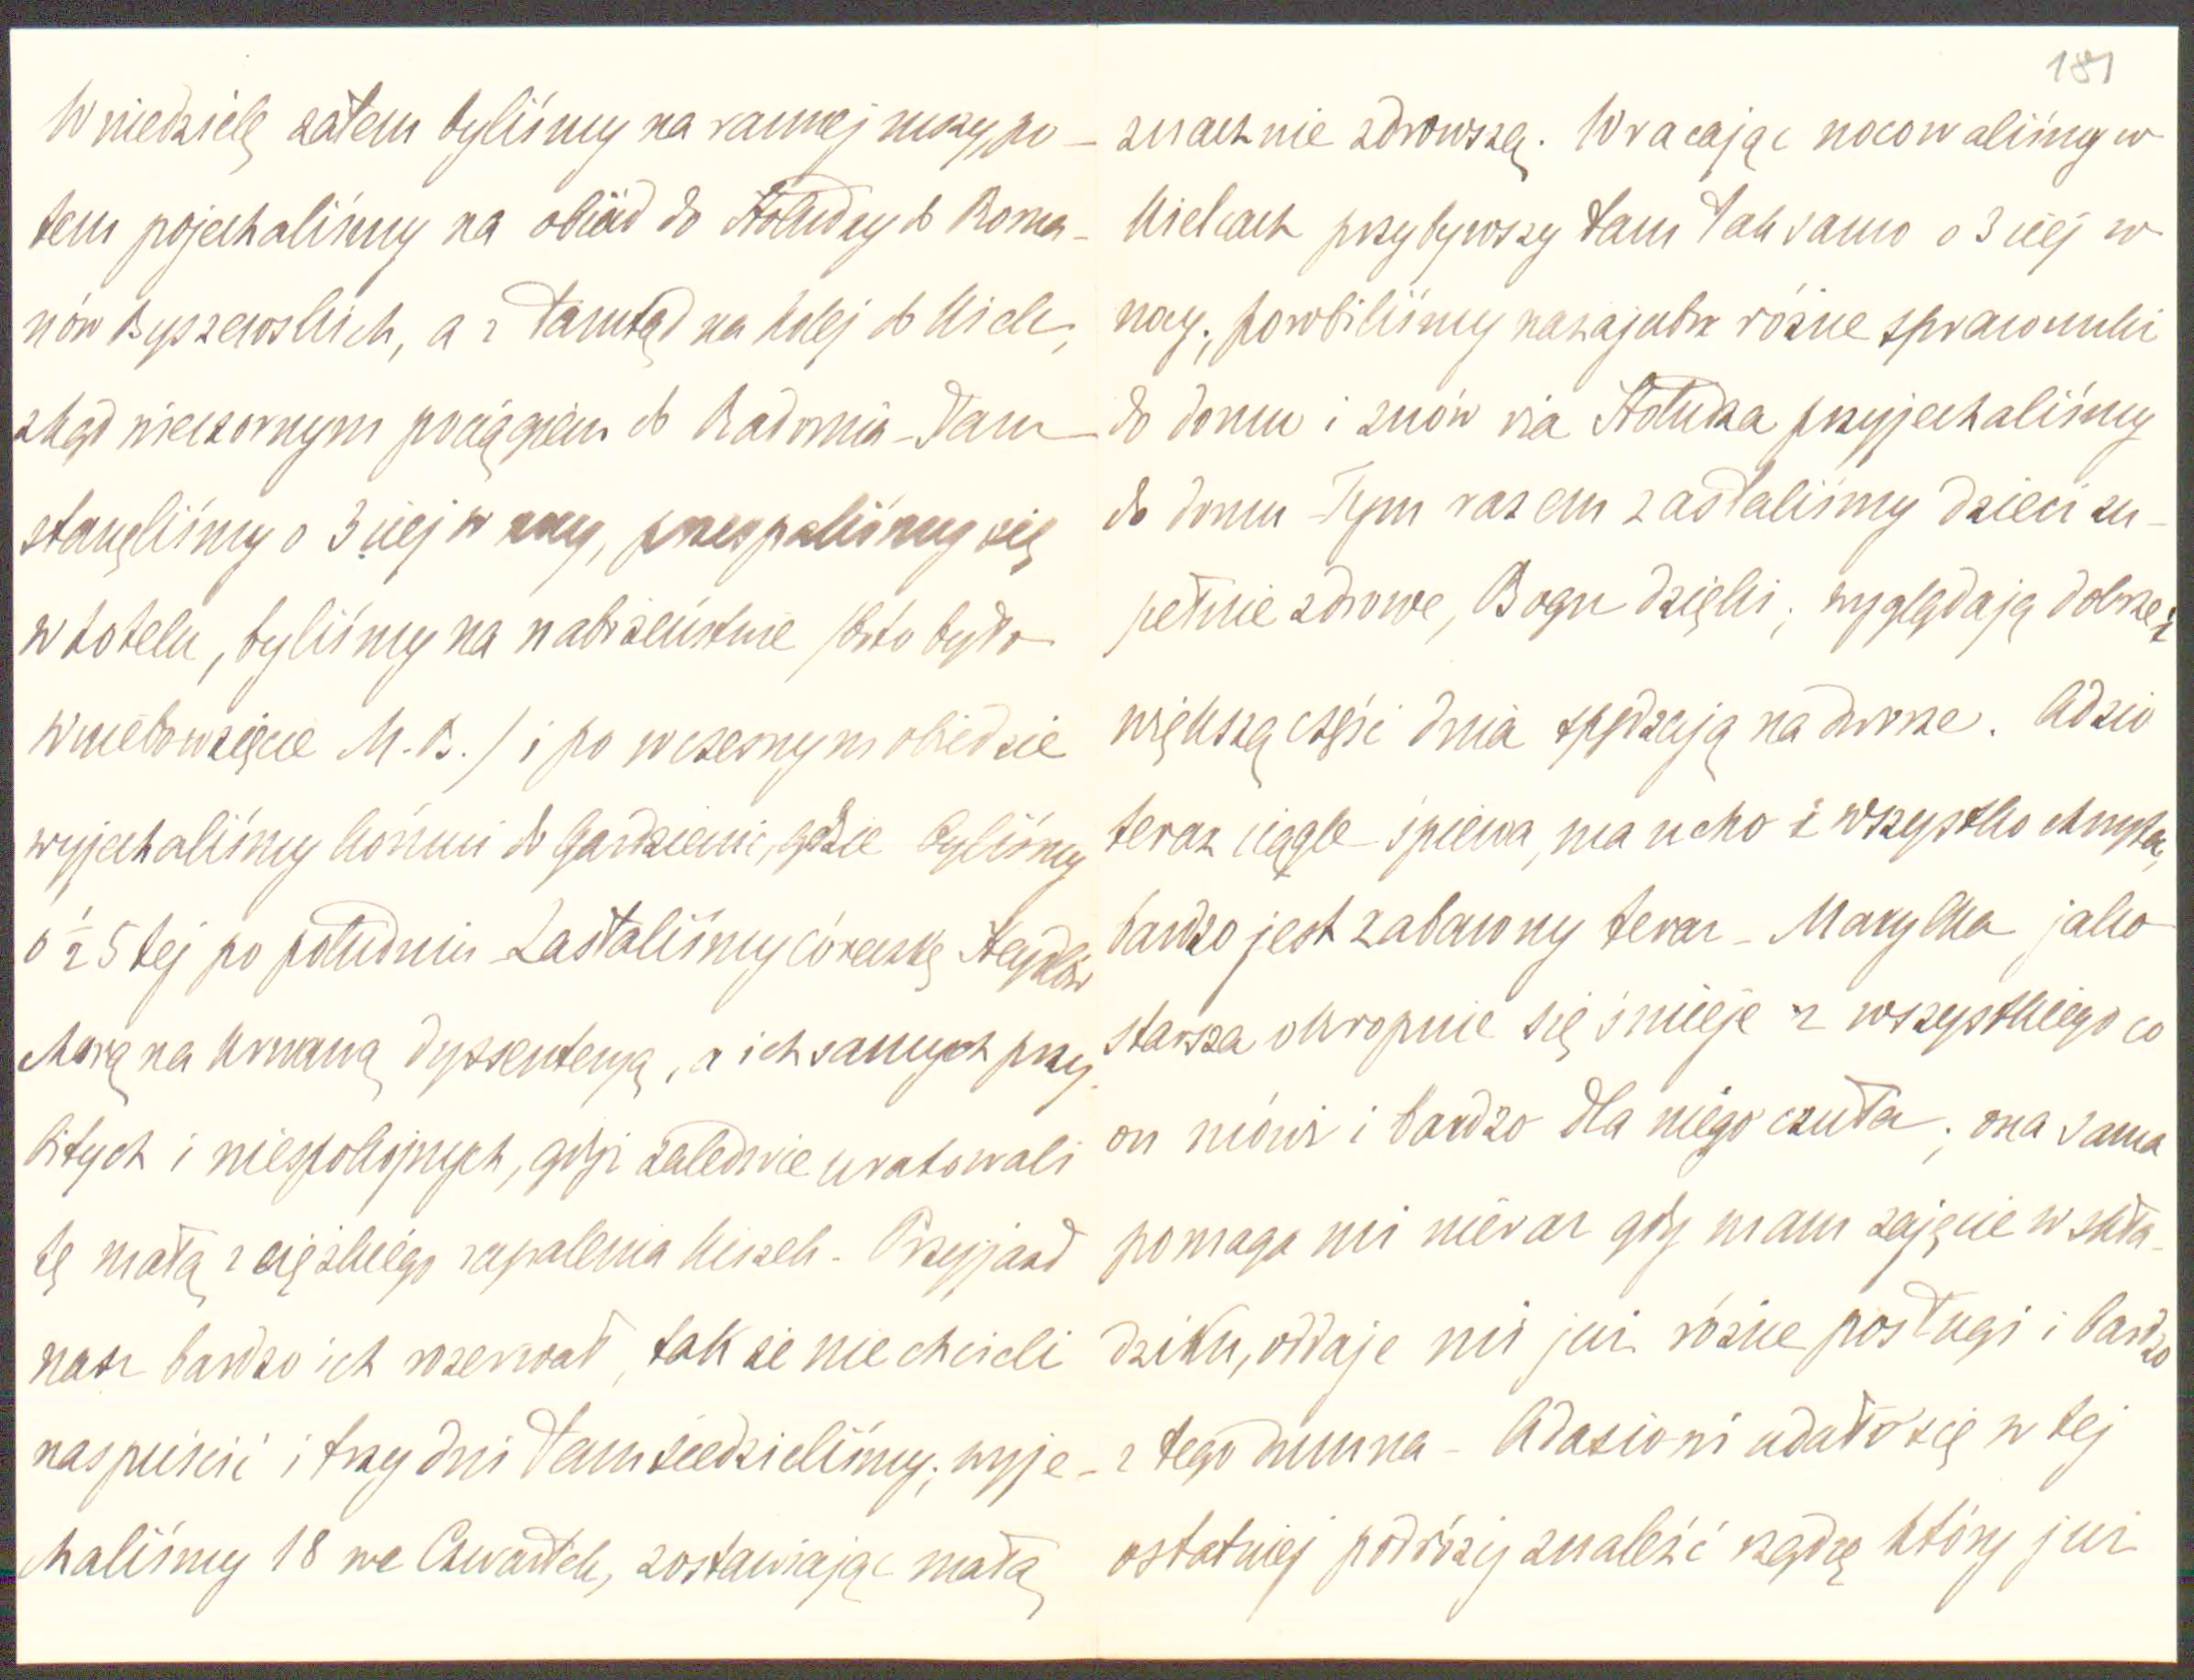 W niedzielę zatem byliśmy na rannej mszy, po-
tem pojechaliśmy na obiad do Stołudzy do Roma-
nów Byszewskich, a z tamtąd na kolej do Kielc,
zkąd wieczornym pociągiem do Radomia - Tam
stanęliśmy o 3ciej w nocy, przespaliśmy się
w hotelu, byliśmy na nabożeństwie /bo to było
Wniebowzięcie M.B./ i po wczesnym obiedzie
wyjechaliśmy końmi do Gardzienic, gdzie byliśmy
o ½ 5tej po południu - Zastaliśmy córeczkę
chorą na krwawą dyssenterją, a ich samych przy-
bitych i niespokojnych, gdyż zaledwie uratowali
tę małą z ciężkiego zapalenia kiszek - Przyjazd
nasz bardzo ich rozerwał, tak że nie chcieli
nas puścić i trzy dni tam siedzieliśmy; wyje-
chaliśmy 18 we Czwartek, zostawiając małą
181
znacznie zdrowszą. Wracając nocowaliśmy w
Kielcach przybywszy tam tak samo o 3ciej w
nocy; porobiliśmy nazajutrz różne sprawunki
do domu i znów via Stołudza przyjechaliśmy
do domu - Tym razem zastaliśmy dzieci zu-
pełnie zdrowe, Bogu dzięki; wyglądają dobrze i
większą część dnia spędzają na dworze. Adzio
teraz ciągle śpiewa, ma ucho i wszystko chwyta,
bardzo jest zabawny teraz - Marylka jako
starsza okropnie się śmieje z wszystkiego co
on mówi i bardzo dla niego czuła; ona sama
pomaga mi nieraz gdy mam zajęcie w skła-
dziku, oddaje mi już różne posługi i bardzo
z tego dumna - Adasiowi udało się w tej
ostatniej podróży znaleźć rządcę który już